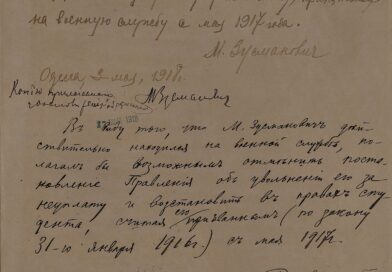 на военную службу с мая 1917 года.
М. Зусманович
Одесса 2 мая, 1918.
Копію
М Зусманович
1918
Въ виду того, что М. Зусмановичъ дѣй-
ствительно находился на военной службѣ, по-
лагалъ бы возможнымъ отмѣнить поста-
новленіе Правленія объ увольненіи его за
неуплату и возстановить въ правахъ сту-
дента, считая его призваннымъ (по закону
31-го января 1916 г.) съ мая 1917 г.